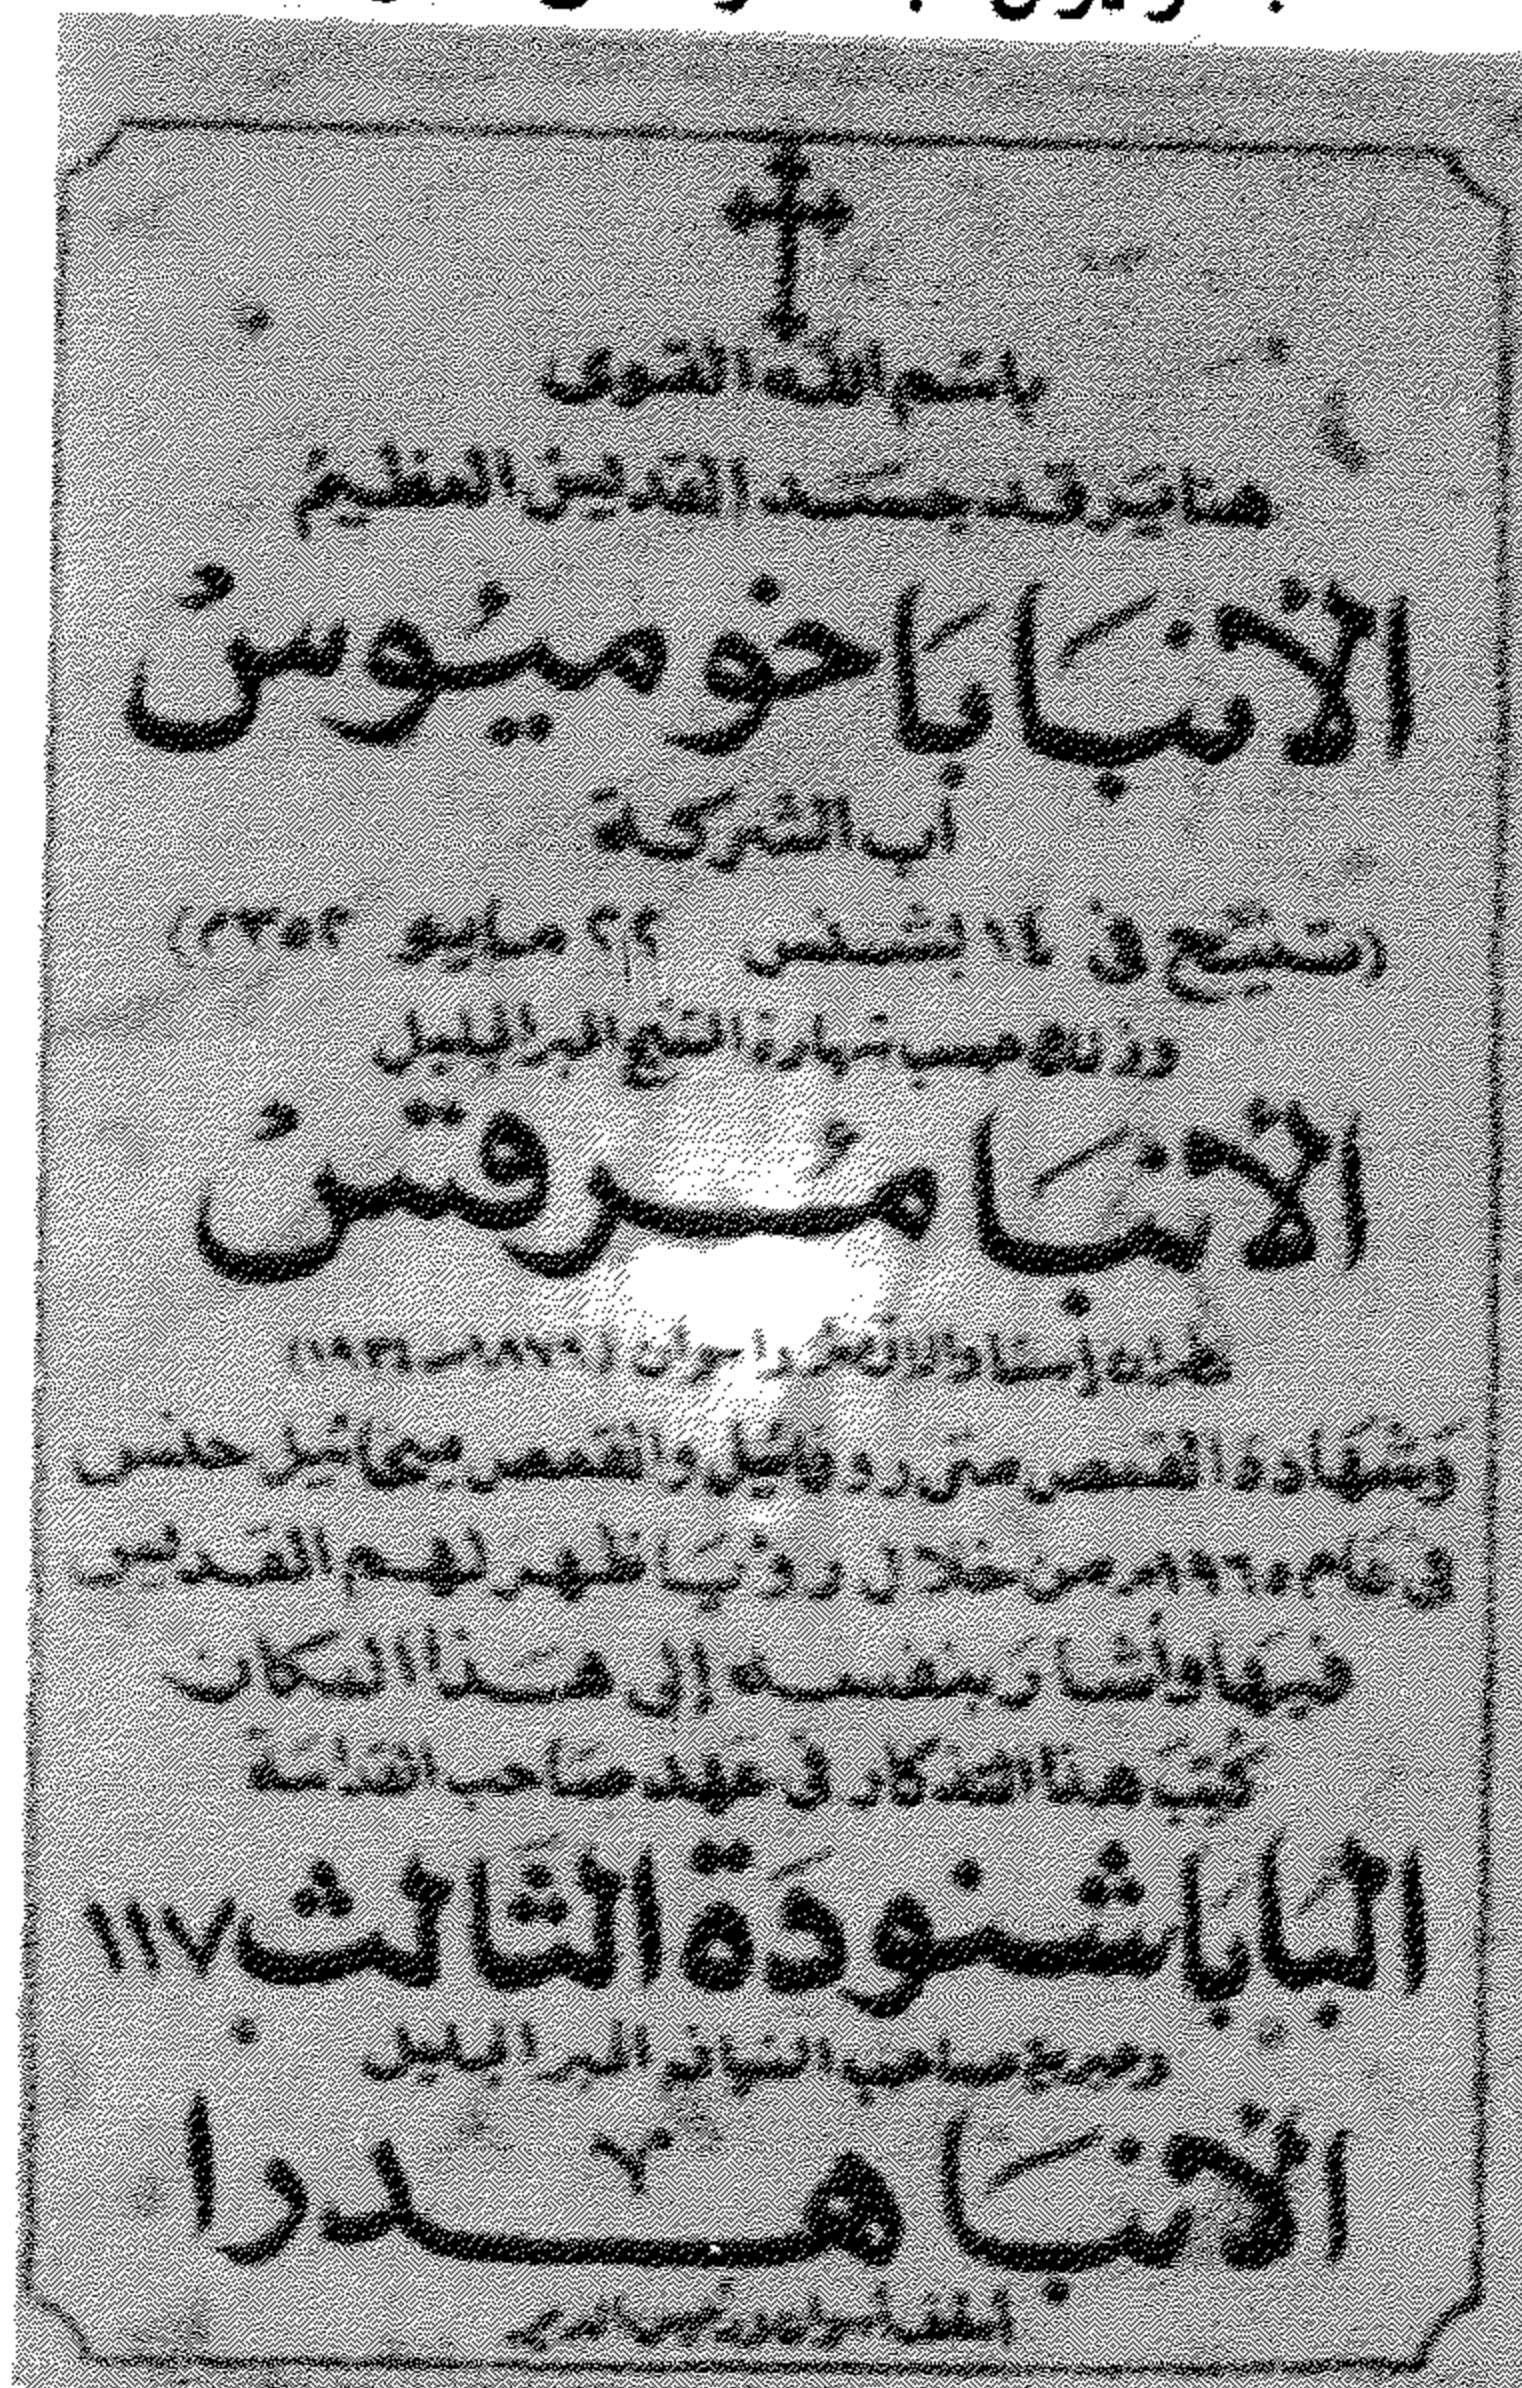 باسم الله القوى
هنا يرقد جسد القديس العظيم
الأنبا باخوميوس
أب الشركة
(تنيح فى ١٤ بشنس ٢٢ مايو ٣٥٢م)
وذلك حسب شهادة المتنيح الحبر الجليل
الأنبا مرقس
مطران إسنا والأقصر وأسوان (١٨٧٩ـ١٩٣٤)
وشهادة القمص متى روفائيل والقمص ميخائيل حلس
فى عام ١٩٦٥م من خلال رؤيا ظهر لهم القديس
فيها وأشار بنفسه إلى هذا المكان
كُتِبَ هذا التذكار فى عهد صاحب القداسة
البابا شنودة الثالث ١١٧
وحبرية صاحب النيافة الحبر الجليل
الأنبا هدرا
أسقف أسوان